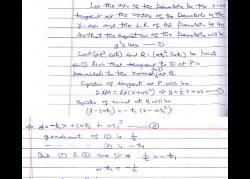 Let the axis of the parabola be the x-axis
tangent at the vertex of the parabola be the
y-axis and the L.R of the parabola be 4a
so that the equation of the parabola will be
y²=4ax —①
Let P(at², 2at) and Q: (at₁², 2at₁) be points
on ① such that tangent to ① at P is
parallel to the normal at Q
Equation of tangent at P will be
Equation of normal at Q will be
(y-2at₁) = -t₁(x-at₁²)
⇒ y = -t₁x + 2at₁ + at₁³ —③
gradient of ② is 1/t
is -t₁
But ① & ② are ⇒ 1/t = -t₁
or t₁ = -1/t